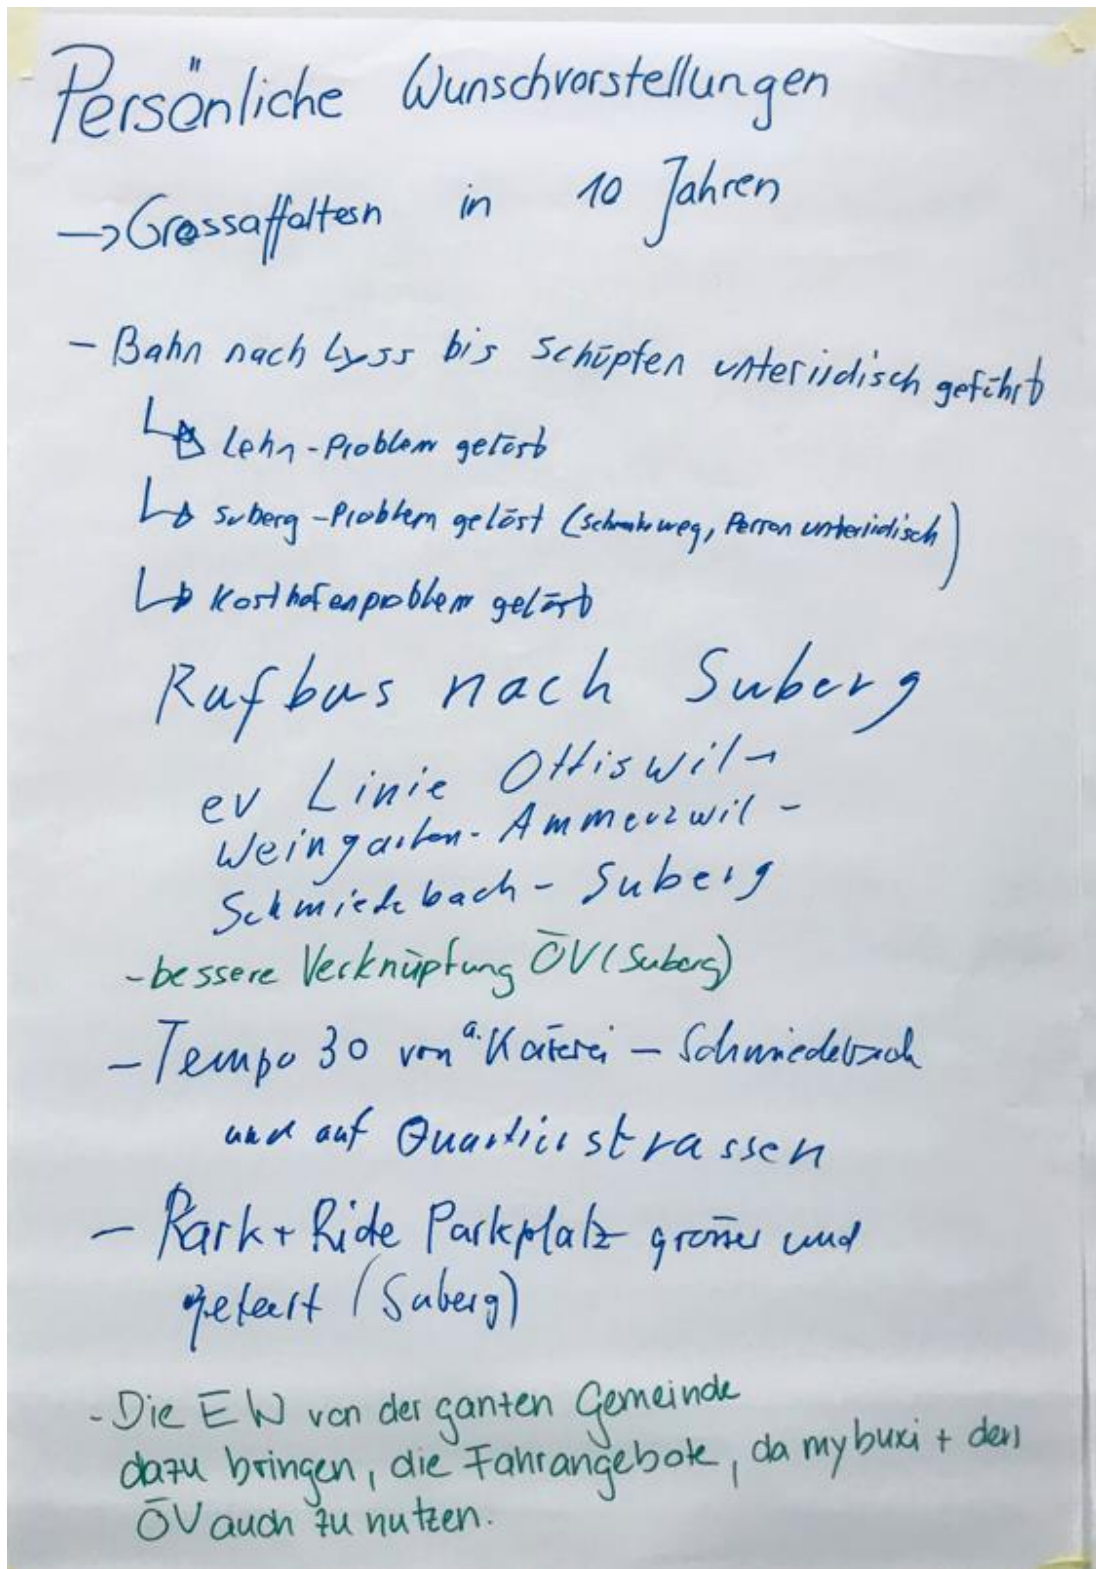 Persönliche Wunschvorstellungen
→ Grossaffoltern in 10 Jahren
- Bahn nach Lyss bis Schüpfen unteriidisch geführt
↳ Lehn-Problem gelöst
↳ Suberg-Problem gelöst (Schranke weg, Perron unteriidisch)
↳ Kosthofenproblem gelöst
Rufbus nach Suberg
ev Linie Ottiswil -
Weingarten - Ammerzwil -
Schmiedebach - Suberg
- bessere Verknüpfung ÖV (Suberg)
- Tempo 30 von a. Käserei - Schmiedebach
und auf Quartierstrassen
- Park + Ride Parkplatz grösser und
geteert (Suberg)
- Die EW von der ganzen Gemeinde
dazu bringen, die Fahrangebote, da mybuxi + den
ÖV auch zu nutzen.